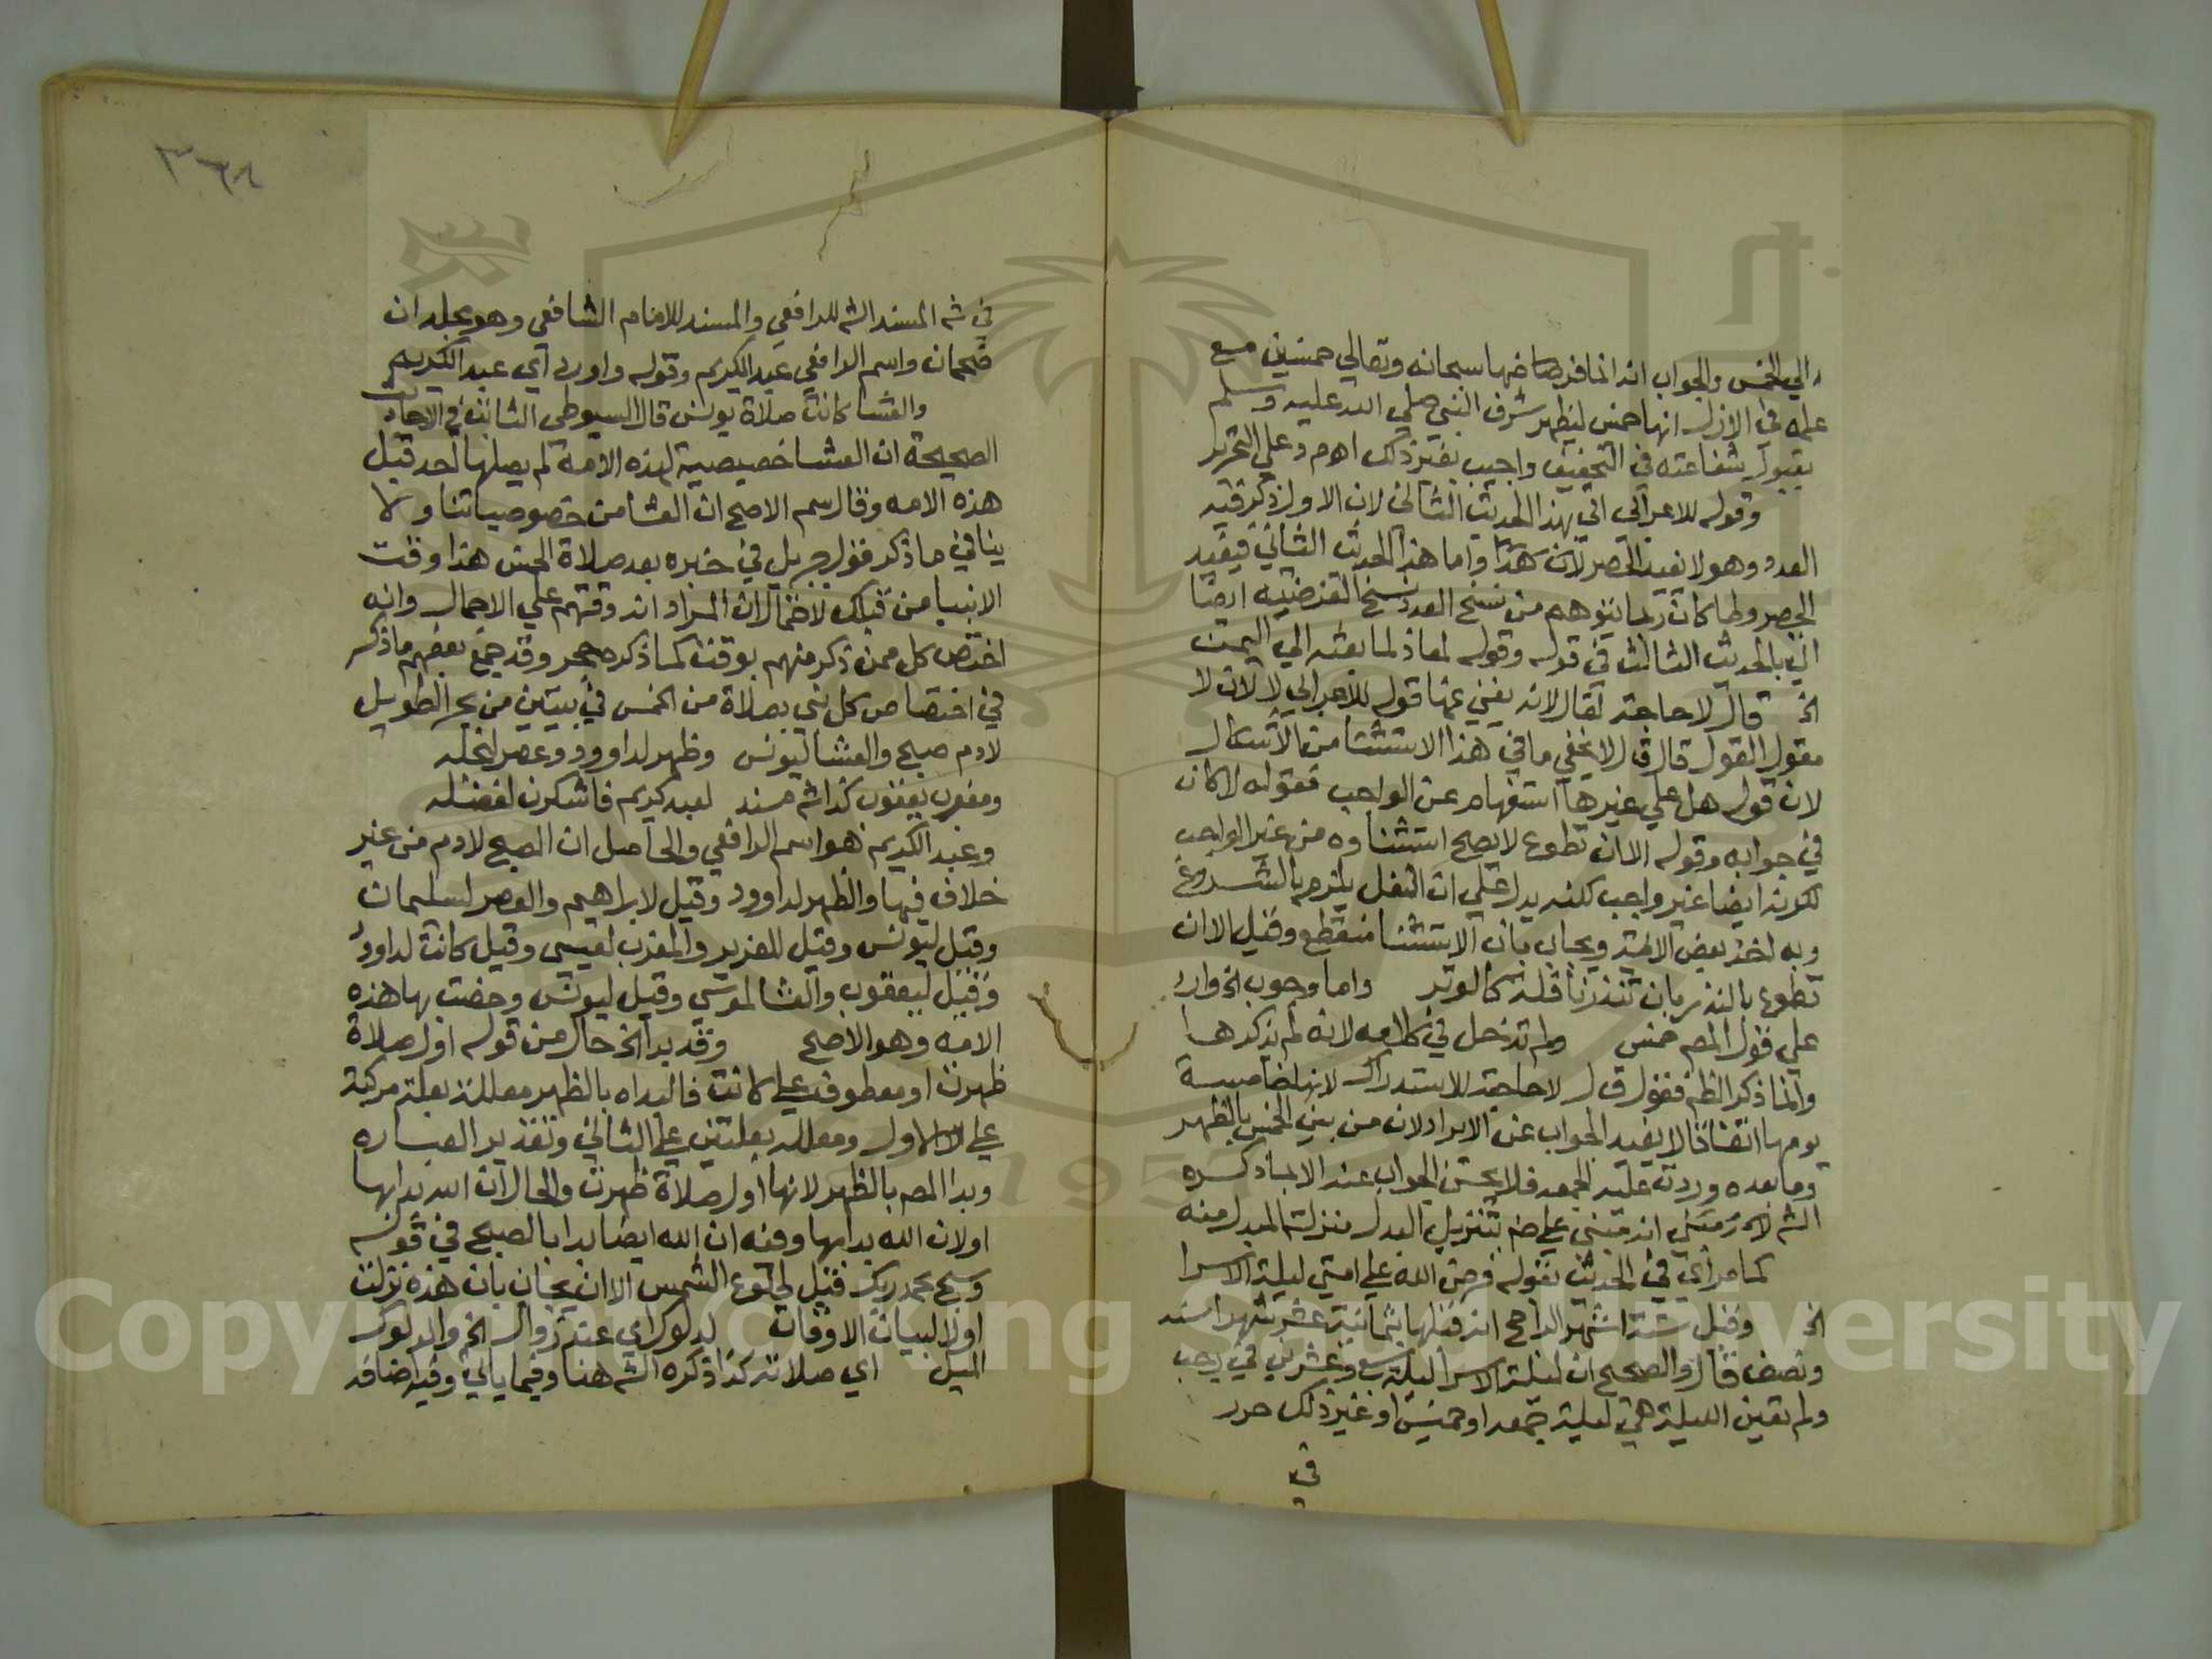 الي الخمس والجواب انه انما فرضها سبحانه وتعالي خمسين مع
علمه في الازل انها خمس ليظهر شرف النبي صلي الله عليه وسلم
بقبول شفاعته في التخفيف واجيب بغير ذلك اهم وعلي التحرير
وقوله للاعرابي اتي بهذا الحديث الثاني لان الاول ذكر فيه
العدد وهو لا يفيد الحصر لان واما هذا الحديث الثاني فيفيد
الحصر ولما كان ربما يتوهم من نسخ العدد نسخ الفرضية ايضا
اتي بالحديث الثالث في قوله وقوله لمعاذ لما بعثه الي اليمن
الخ قال لا حاجة لقال لانه يغني عنها قوله للاعرابي لا لان لا
مقول القول قال ق ل لا يخفي ما في هذا الاستثنا من الاشكال
لان قوله هل علي غيرها استفهام عن الواجب فقوله لا كان
في جوابه وقوله الا ان تطوع لا يصح استثناوه من غير الواجب
لكونه ايضا غير واجب كلنه يدل علي ان النفل يلزم بالشروع
وبه اخذ بعض الايمة ويجاب بان الاستثنا منقطع وقيل الا ان
تطوع بالنذر بان تنذر نافلة كالوتر واما وجوب الخ وارد
علي قول المص خمس ولم تدخل في كلامه لانه لم يذكرها
وانما ذكر الظهر فقول ق ل لا حاجة للاستدراك لانها خامسة
يومها اتفاقا لا يفيد الجواب عن الايراد لان من بين الخمس بالظهر
وما بعده وردت عليه الجمعة فلا يحسن الجواب عند الا بما ذكره
الش لا مبني علي تنزيل البدل منزلة المبدل منه
كما مر اي في الحديث بقوله فرض الله علي امتي ليلة الاسرا
الخ وقيل ستة اشهر الراجح انه قبلها بثمانية عشر شهرا سنة
ونصف قال والصحيح ان ليلة الاسرا ليلة سبع وعشرين في رجب
ولم تعين الليلة هي ليلة جمعة او خميس او غير ذلك حرر
في
٣٦٨
في شه المسند الش للرافعي والمسند للامام الشافعي وهو مجلدان
ضخمان واسم الرافعي عبد الكريم وقوله واورد اي عبد الكريم
والعشا كانت صلاة يونس قال السيوطي الثابت في الاحاديث
الصحيحة ان العشا خصيصية لهذه الامة لم يصلها احد قبل
هذه الامه وقال سم الاصح ان العشا من خصوصياتنا ولا
ينافي ما ذكر قول جبريل في خبره بعد صلاة الخمس هذا وقت
الانبيا من قبلك لاحتمال ان المراد انه وقتهم علي الاجمال وانه
اختص كل ممن ذكر منهم بوقت كما ذكره حجر وقد جمع بعضهم ما ذكر
في اختصاص كل نبي بصلاة من الخمس في بيتين من بحر الطويل
لادم صبح والعشا ليونس وظهر لداوود وعصر لنجله
ومغرب يعقوب كذا شه مسند لعبد كريم فاشكرن لفضله
وعبد الكريم هو اسم الرافعي والحاصل ان الصبح لادم من غير
خلاف فيها والظهر لداوود وقيل لابراهيم والعصر لسليمان
وقيل ليونس وقيل للعزير والمغرب لعيسي وقيل كانت لداود
وقيل ليعقوب والعشا لموسي وقيل ليونس وخصت بها هذه
الامه وهو الاصح وقد بدا الخ حال من قوله اول صلاة
ظهرت او معطوف علي كانت فالبداه بالظهر معللة بعلة مركبة
علي الاول ومعلله بعلتين علي الثاني وتقدير العباره
وبدا المص بالظهر لانها اول صلاة ظهرت والحال ان الله بدا بها
اولان الله بدا بها وفيه ان الله ايضا بدا بالصبح في قوله
وسبح بحمد ربك قبل طلوع الشمس الا ان يجاب بان هذه نزلت
اولا لبيان الاوقات لدلوك اي عند زوال الخ والدلوك
الميل اي صلاته كذا ذكره الش هنا وفيما ياتي وفيه اضافه